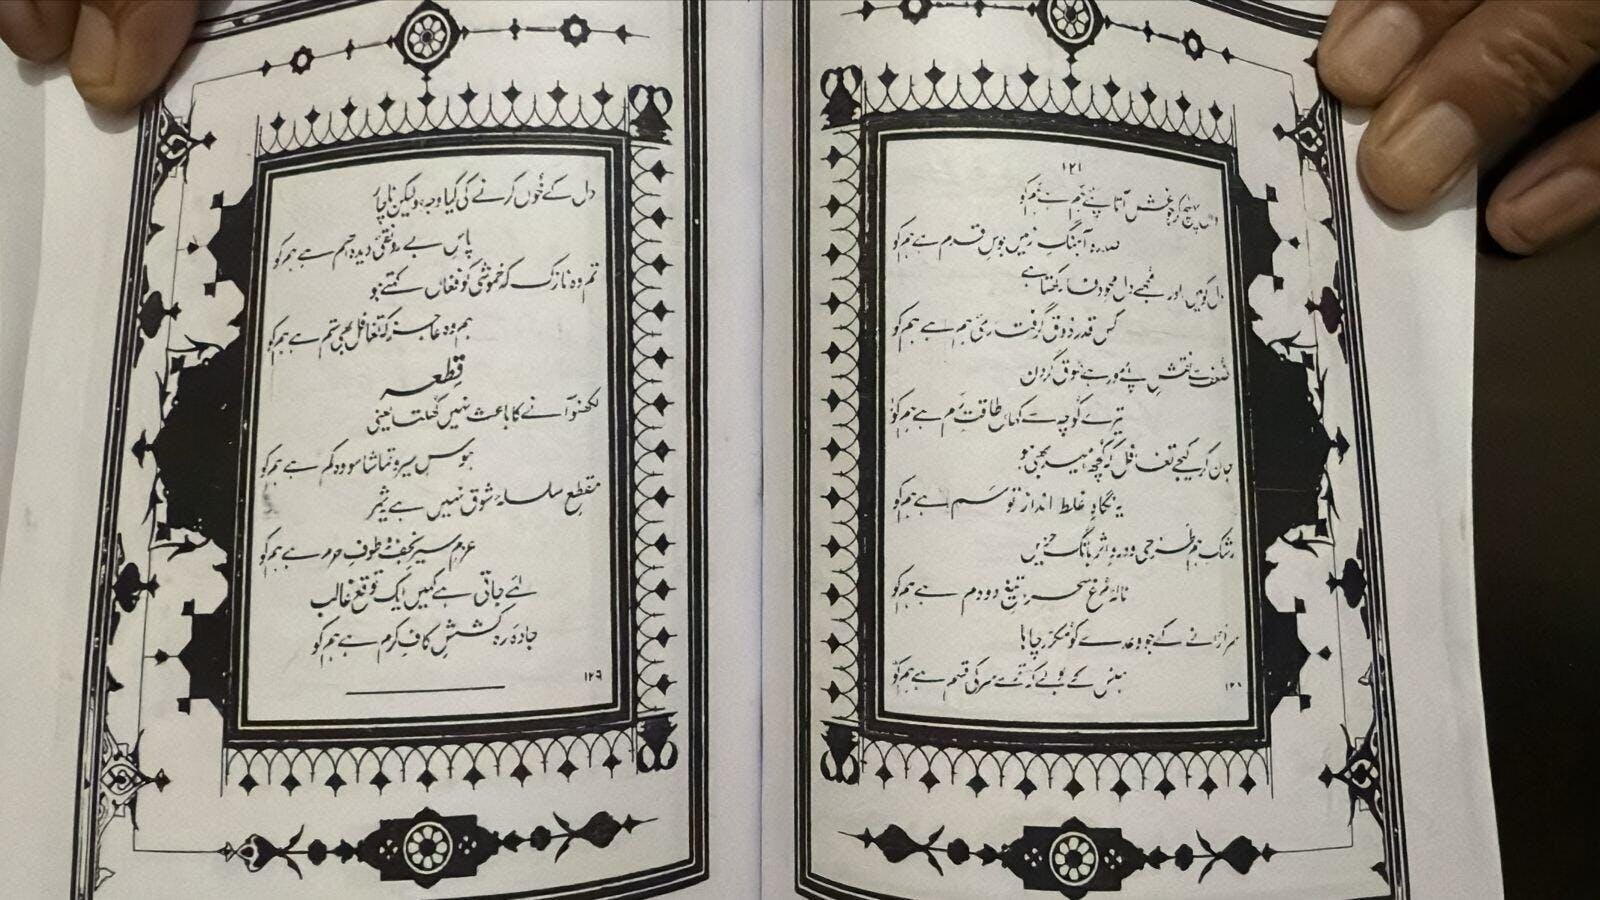 ۱۲۱
واں پہنچ کر جو غش آتا پئے ہم ہے ہم کو
صدرہ آہنگِ زمیں بوسِ قدم ہے ہم کو
دل کو میں اور مجھے دل محوِ وفا رکھتا ہے
کس قدر ذوقِ گرفتاریِ ہم ہے ہم کو
ضعف سے نقشِ پئے مور ہے طوقِ گردن
تیرے کوچہ سے کہاں طاقتِ رم ہے ہم کو
جان کر کیجے تغافل کہ کچھ امید بھی ہو
یہ نگاہِ غلط انداز تو سم ہے ہم کو
رشکِ ہم طرحی و دردِ اثرِ بانگِ حزیں
نالۂ مرغِ سحر، تیغِ دو دم ہے ہم کو
سر اڑانے کے جو وعدے کو مکرر چاہا
ہنس کے بولے کہ ترے سر کی قسم ہے ہم کو
دل کے خوں کرنے کی کیا وجہ، ولیکن ناچار
پاسِ بے رونقیِ دیدہ اہم ہے ہم کو
تم وہ نازک کہ خموشی کو فغاں کہتے ہو
ہم وہ عاجز کہ تغافل بھی ستم ہے ہم کو
قطعہ
لکھنؤ آنے کا باعث نہیں کھلتا یعنی
ہوسِ سیر و تماشا سو وہ کم ہے ہم کو
مقطعِ سلسلۂ شوق نہیں ہے یہ شہر
عزمِ سیرِ نجف و طوفِ حرم ہے ہم کو
لئے جاتی ہے کہیں ایک توقع غالب
جادۂ رہ کششِ کافِ کرم ہے ہم کو
۱۲۹